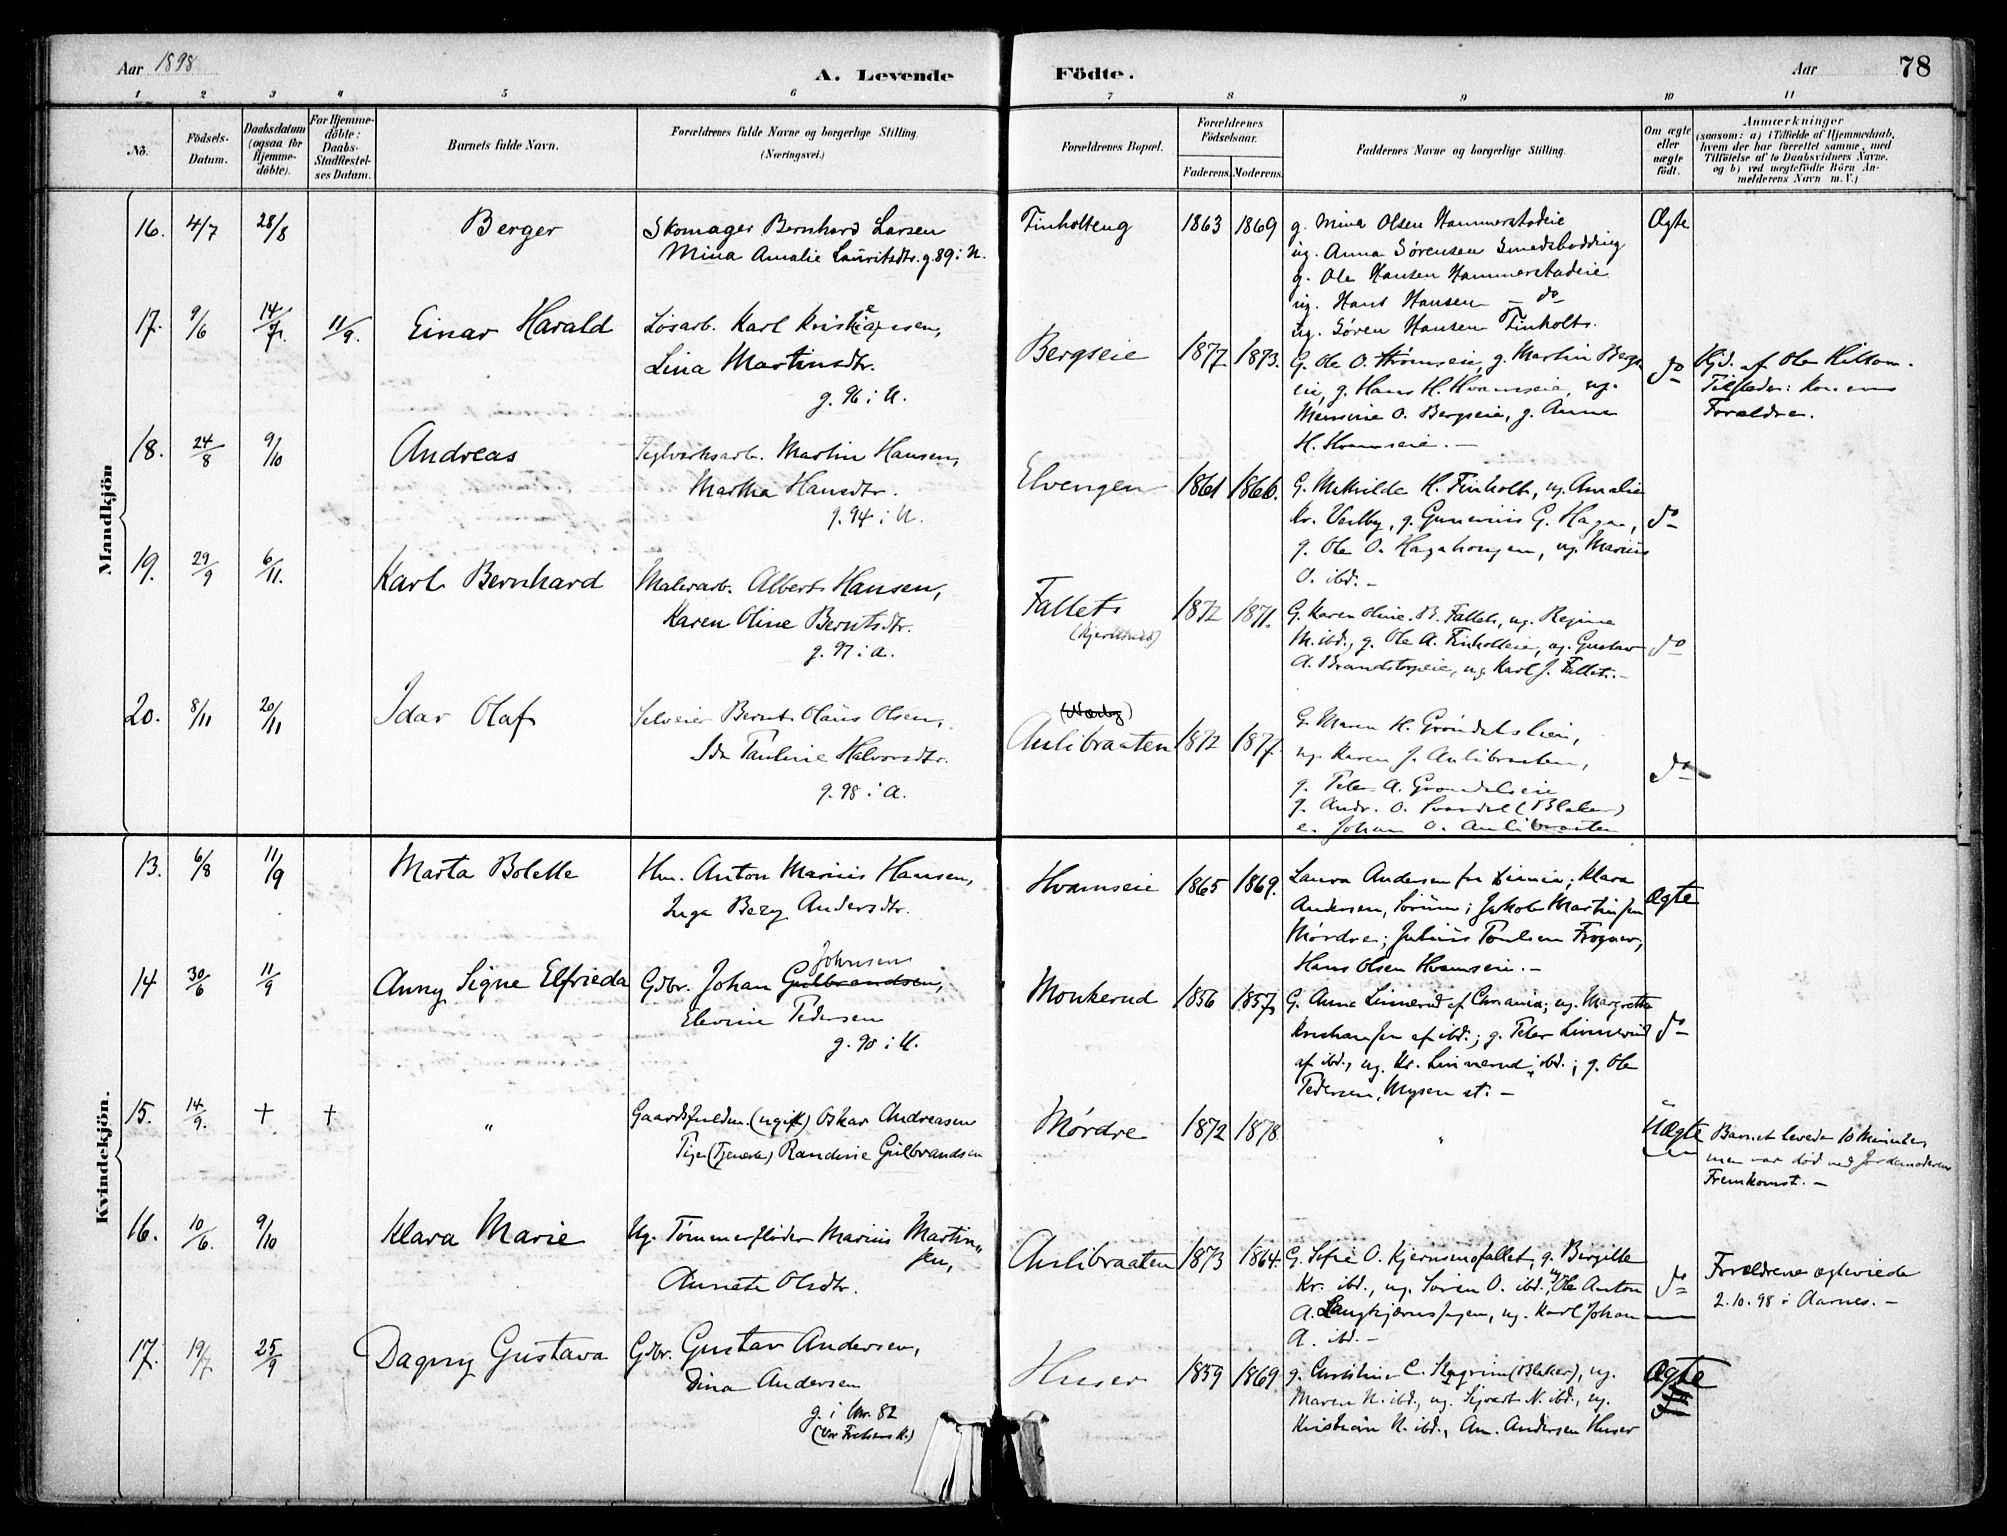 Aar 1898
A. Levende
Födte.
Aar
78
1 2 3 4 5 6 7 8 9 10 11
No.
Födsels-
Datum.
Daabsdatum
(ogsaa for
Hjemme-
döbte).
For Hjemme-
döbte:
Daabs-
Stadfæstel-
ses Datum.
Barnets fulde Navn.
Forældrenes fulde Navne og borgerlige Stilling.
(Næringsvei.)
Forældrenes Bopæl.
Forældrenes
Födselsaar.
Faderens. Moderens.
Faddernes Navne og borgerlige Stilling.
Om ægte
eller
uægte
födt.
Anmærkninger
(saasom: a) i Tilfælde af Hjemmedaab,
hvem der har forrettet samme, med
Tilföielse af to Daabsvidners Navne.
og b) ved uægtefödte Börn An-
melderens Navn m.V.)
Mandkjön
16. 4/7 28/8 Berger
Skomager Bernhard Larsen
Mina Amalie Lauritsdtr. g. 89 i U.
Finholteng 1863 1869
g. Mina Olsen Hammerstadeie
ug. Anna Sørensen
g. Ole Hansen Hammerstadeie
ug. Hans Hansen - do
ug. Søren Hansen Finholts.
Ægte
17. 9/6 14/7. 11/9. Einar Harald
Løsarb. Karl Kristiansen,
Lina Martinsdtr.
g. 96 i U.
Bergseie 1877 1873.
G. Ole O. Strømseie, g. Martin Bergs-
eie, g. Hans H. Hvamseie, ug.
O. Bergseie, g. Anna
H. Hvamseie. -
do
Hjd. af Ole
Tilstede: Konens
Forældre.
18. 24/8 9/10 Andreas
Teglverksarb. Martin Hansen,
Martha Hansdtr.
g. 94 i U.
Elvengen 1861 1866.
G. Mathilde H. Finholt, ug. Amalie
Kr. Vestby, g. Gunerius G. Haga,
g. Ole O. Hagahougen, ug. Marius
O. ibd. -
do
19. 29/9 6/11. Karl Bernhard
Malerarb. Albert Hansen,
Karen Oline Berntsdtr.
g. 97 i A.
Fallets
1872 1871.
G. Karen Oline B. Fallet, ug. Regine
M. ibd., g. Ole A. Finholteie, ug. Gustav
A. Brandstorpeie, ug. Karl J. Fallet. -
do
20. 8/11 20/11 Idar Olaf
Selveier Bernt Olaus Olsen,
Ida Pauline Halvorsdtr.
g. 98 i A.
Aulibraaten 1872 1877.
G. Maren H. Grøndalseie,
ug. Karen J. Aulibraaten,
g. Peter A. Grøndalseie
g. Andr. O. (Blaker)
e. Johan O. Aulibraaten
do
Kvindekjön.
13. 6/8 11/9 Marta Bolette
Hm. Anton Marius Hansen,
Inga Berg Andersdtr.
Hvamseie 1865 1869.
Laura Andersen fra; Klara
Andersen, Sørum; Jakob Martinsen
Mørdre; Julius Poulsen Frogner,
Hans Olsen Hvamseie. -
Ægte
14 30/6 11/9 Anny Signe Elfrieda
Johnsen
Gdbr. Johan Gulbrandsen,
Elevine Pedersen
g. 90 i U.
Monkerud 1856 1857.
G. Anna Linnerud af Chrania; ug. Margrethe
Kristiansen af ibd.; g. Peter Linnerud
af ibd., ug. Kr. Linnerud, ibd.; g. Ole
Pedersen, Mysen st. -
do
15. 14/9. † † "
Gaardsfuldm. (ugift) Oskar Andreasen
Pige (Tjeneste) Randine Gulbrandsen
Mørdre 1872 1878
"
Uægte
Barnet levede 10 Minuter,
men var død ved Jordemoderens
Fremkomst. -
16. 10/6. 9/10 Klara Marie
Ug. Tømmerfløder Marius Martin-
sen,
Annete Olsdtr.
Aulibraaten 1873 1864.
G. Sofie O. Kjernsmofallet, g. Birgitte
Kr. ibd., ug. Søren O. ibd., ug. Ole Anton
A. Langkjærnshagen, ug. Karl Johan
A. ibd. -
do
Forældrene ægteviede
2.10.98 i Aarnes. -
17. 19/7 25/9 Dagny Gustava
Gdbr. Gustav Andersen,
Dina Andersen
g. i Chr. 82
(Vor Frelsers K.)
Huser 1859 1869
g. Christine C. (Blaker), ug.
Maren N. ibd., ug. Sigvart N. ibd., ug.
Kristian N. ibd., An. Andersen Huser
Ægte